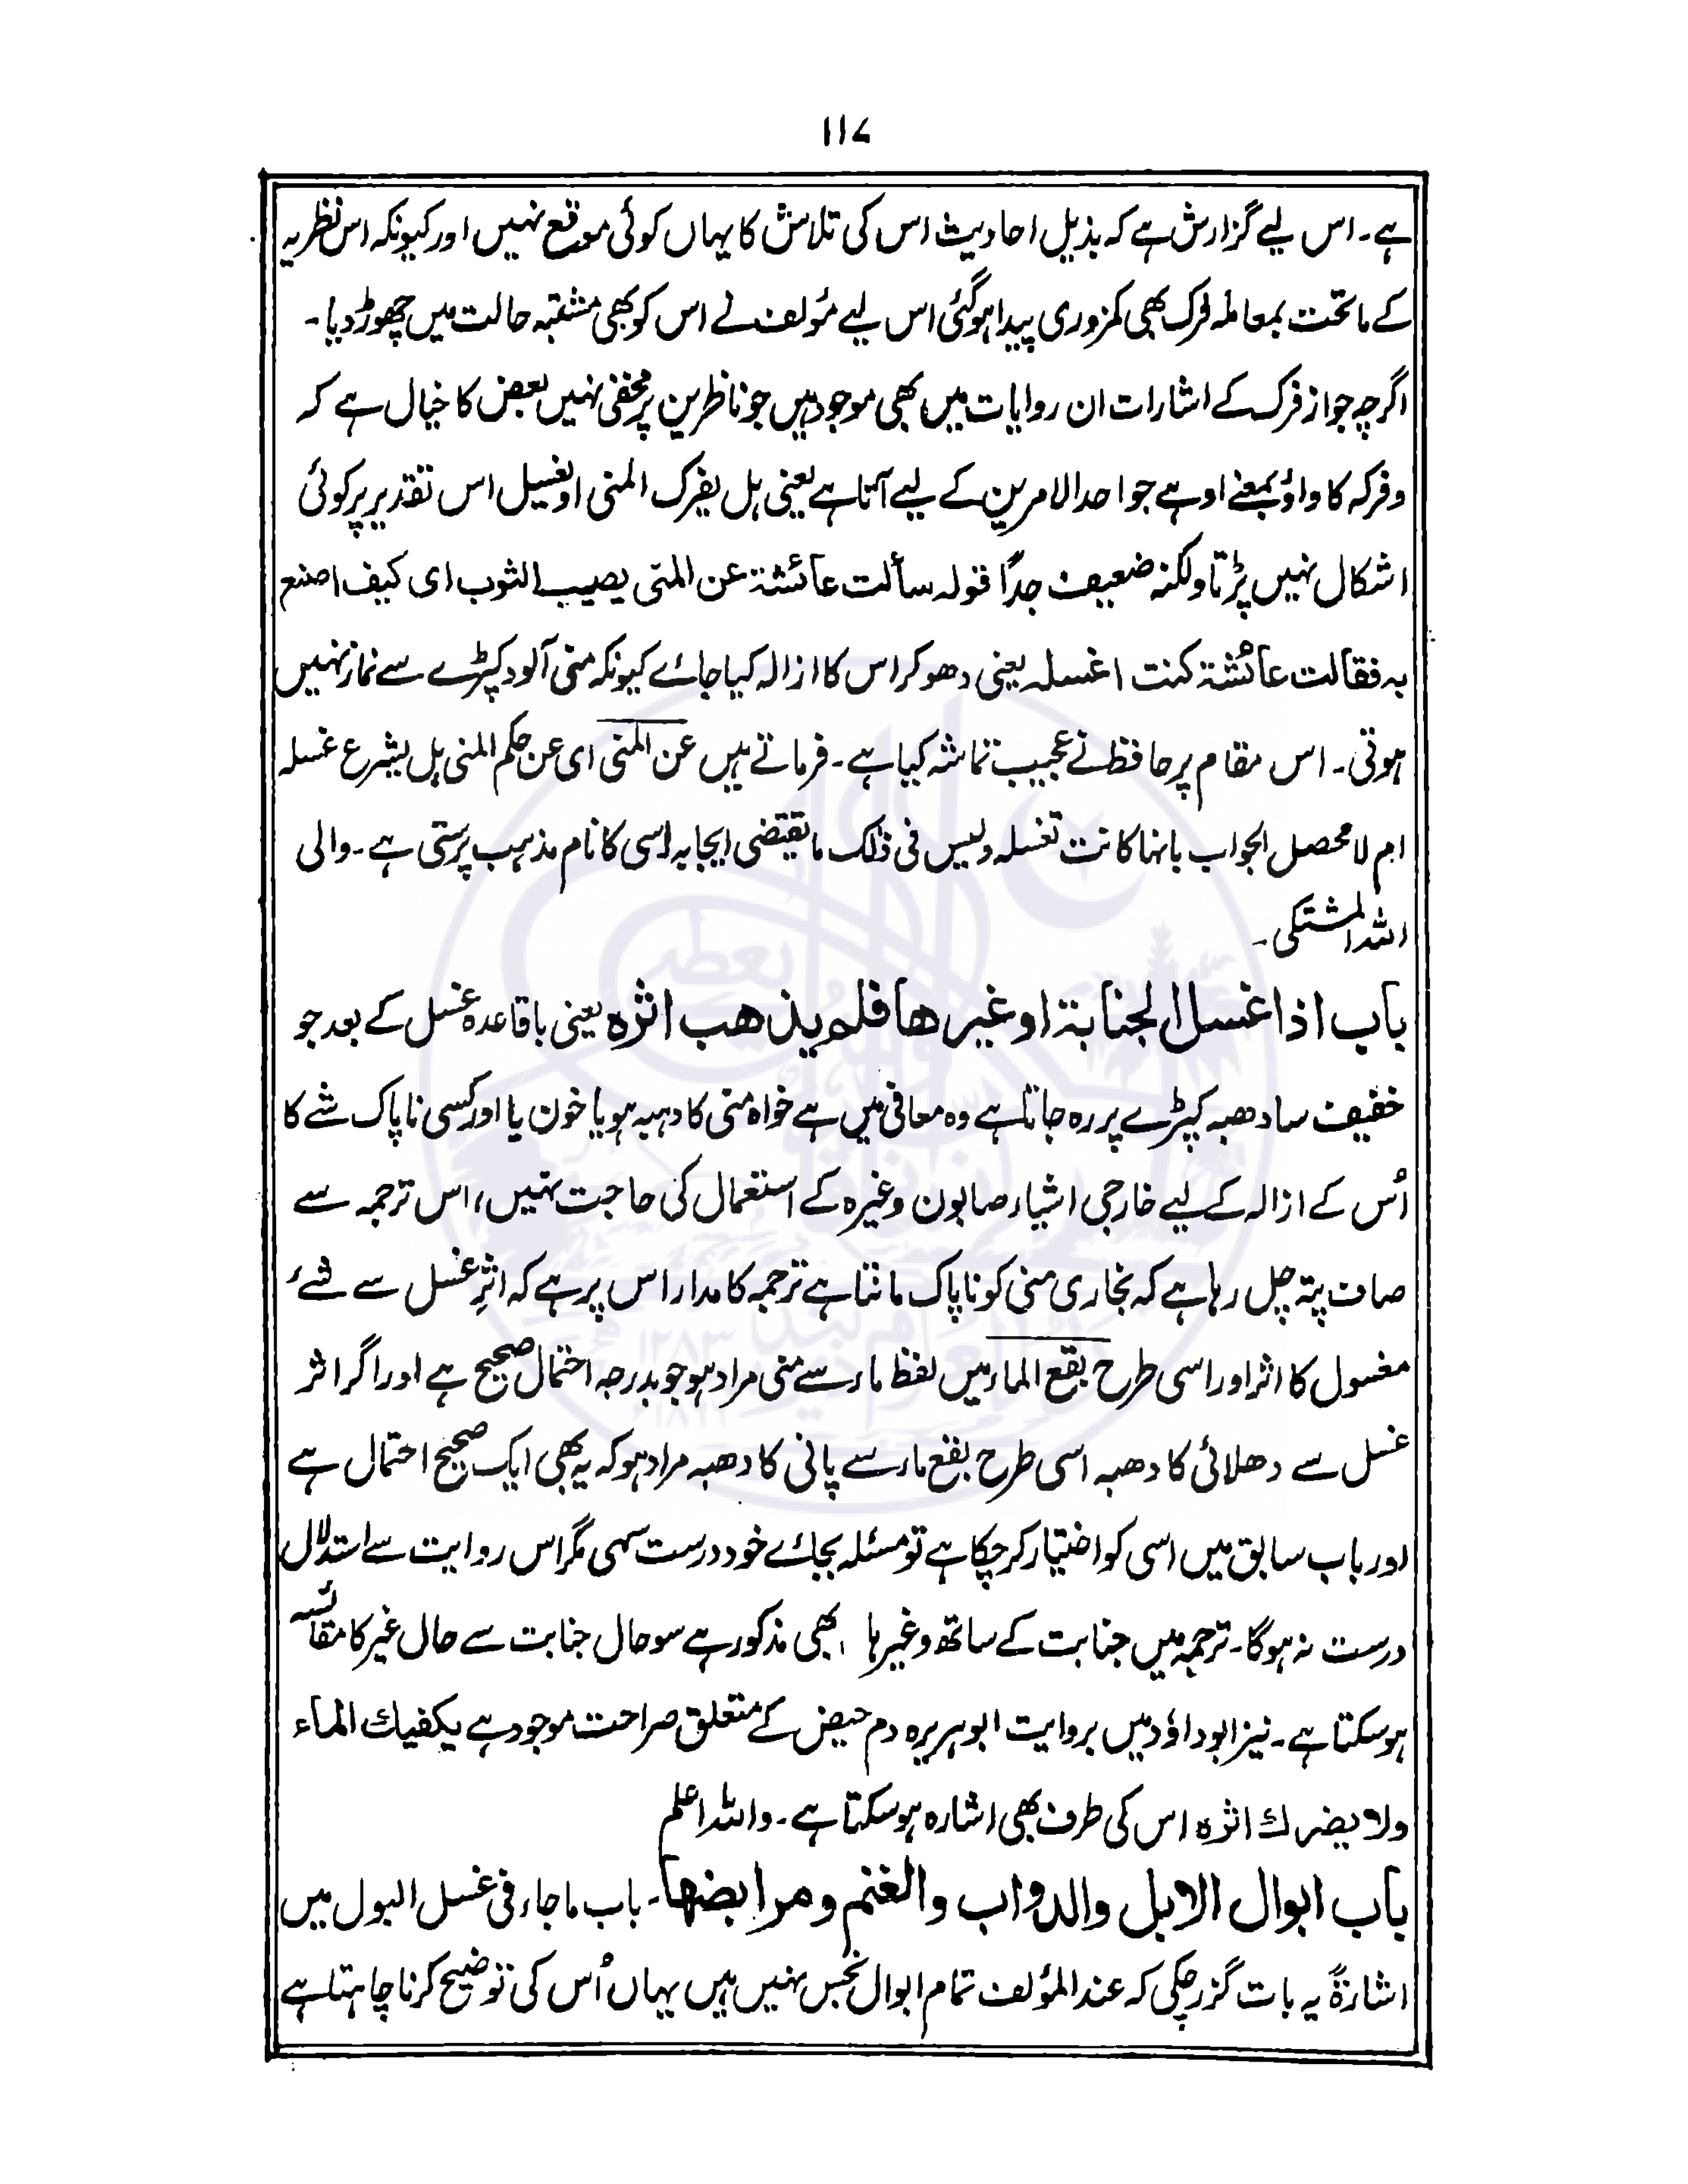 ۱۱۷
ہے۔ اس لیے گزارش ہے کہ بذیل احادیث اس کی تلاش کا یہاں کوئی موقع نہیں اور کیونکہ اس نظریہ
کے ماتحت بمعاملہ فرک بھی کمزوری پیدا ہوگئی اس لیے مؤلف نے اس کو بھی مشتبہ حالت میں چھوڑ دیا۔
اگرچہ جواز فرک کے اشارات ان روایات میں بھی موجود ہیں جو ناظرین پر مخفی نہیں بعض کا خیال ہے کہ
وفرکہ کا واؤ بمعنے او ہے جو احد الامرین کے لیے آتا ہے یعنی ہل یفرک المنی او یغسیل اس تقدیر پر کوئی
اشکال نہیں پڑتا ولکنہ ضعیف جدًا قولہ سألت عائشۃ عن المنی یصیب الثوب ای کیف اصنع
بہ فقالت عائشۃ کنت اغسلہ یعنی دھو کر اس کا ازالہ کیا جائے کیونکہ منی آلود کپڑے سے نماز نہیں
ہوتی۔ اس مقام پر حافظ نے عجیب تماشہ کیا ہے۔ فرماتے ہیں عن المنی ای عن حکم المنی ہل یشرع غسلہ
ام لا محصل الجواب بانہا کانت تغسلہ ولیس فی ذٰلک ما یقتضی ایجابہ اسی کا نام مذہب پرستی ہے۔ والی
اللہ المشتکی۔
باب اذا غسل الجنابۃ او غیرھا فلم یذھب اثرہ یعنی باقاعدہ غسل کے بعد جو
خفیف سا دھبہ کپڑے پر رہ جاتا ہے وہ معافی میں ہے خواہ منی کا دہبہ ہو یا خون یا اور کسی ناپاک شے کا
اُس کے ازالہ کے لیے خارجی اشیاء صابون وغیرہ کے استعمال کی حاجت نہیں، اس ترجمہ سے
صاف پتہ چل رہا ہے کہ بخاری منی کو ناپاک مانتا ہے ترجمہ کا مدار اس پر ہے کہ اثرِ غسل سے شئے
مغسول کا اثر اور اسی طرح بقع الماء میں لفظ ماء سے منی مراد ہو جو بدرجہ احتمال صحیح ہے اور اگر اثر
غسل سے دھلائی کا دھبہ اسی طرح بقع ماء سے پانی کا دھبہ مراد ہو کہ یہ بھی ایک صحیح احتمال ہے
اور باب سابق میں اسی کو اختیار کر چکا ہے تو مسئلہ بجائے خود درست سہی مگر اس روایت سے استدلال
درست نہ ہوگا۔ ترجمہ میں جنابت کے ساتھ وغیرہا بھی مذکور ہے سو حال جنابت سے حال غیر کا مقائسہ
ہو سکتا ہے۔ نیز ابو داؤد میں بروایت ابو ہریرہ دم حیض کے متعلق صراحت موجود ہے یکفیك الماء
ولا یضرك اثرہ اس کی طرف بھی اشارہ ہو سکتا ہے۔ واللہ اعلم
باب ابوال الابل والدواب والغنم ومرابضھا۔ باب ما جاء فی غسل البول میں
اشارۃً یہ بات گزر چکی کہ عند المؤلف تمام ابوال نجس نہیں ہیں یہاں اُس کی توضیح کرنا چاہتا ہے